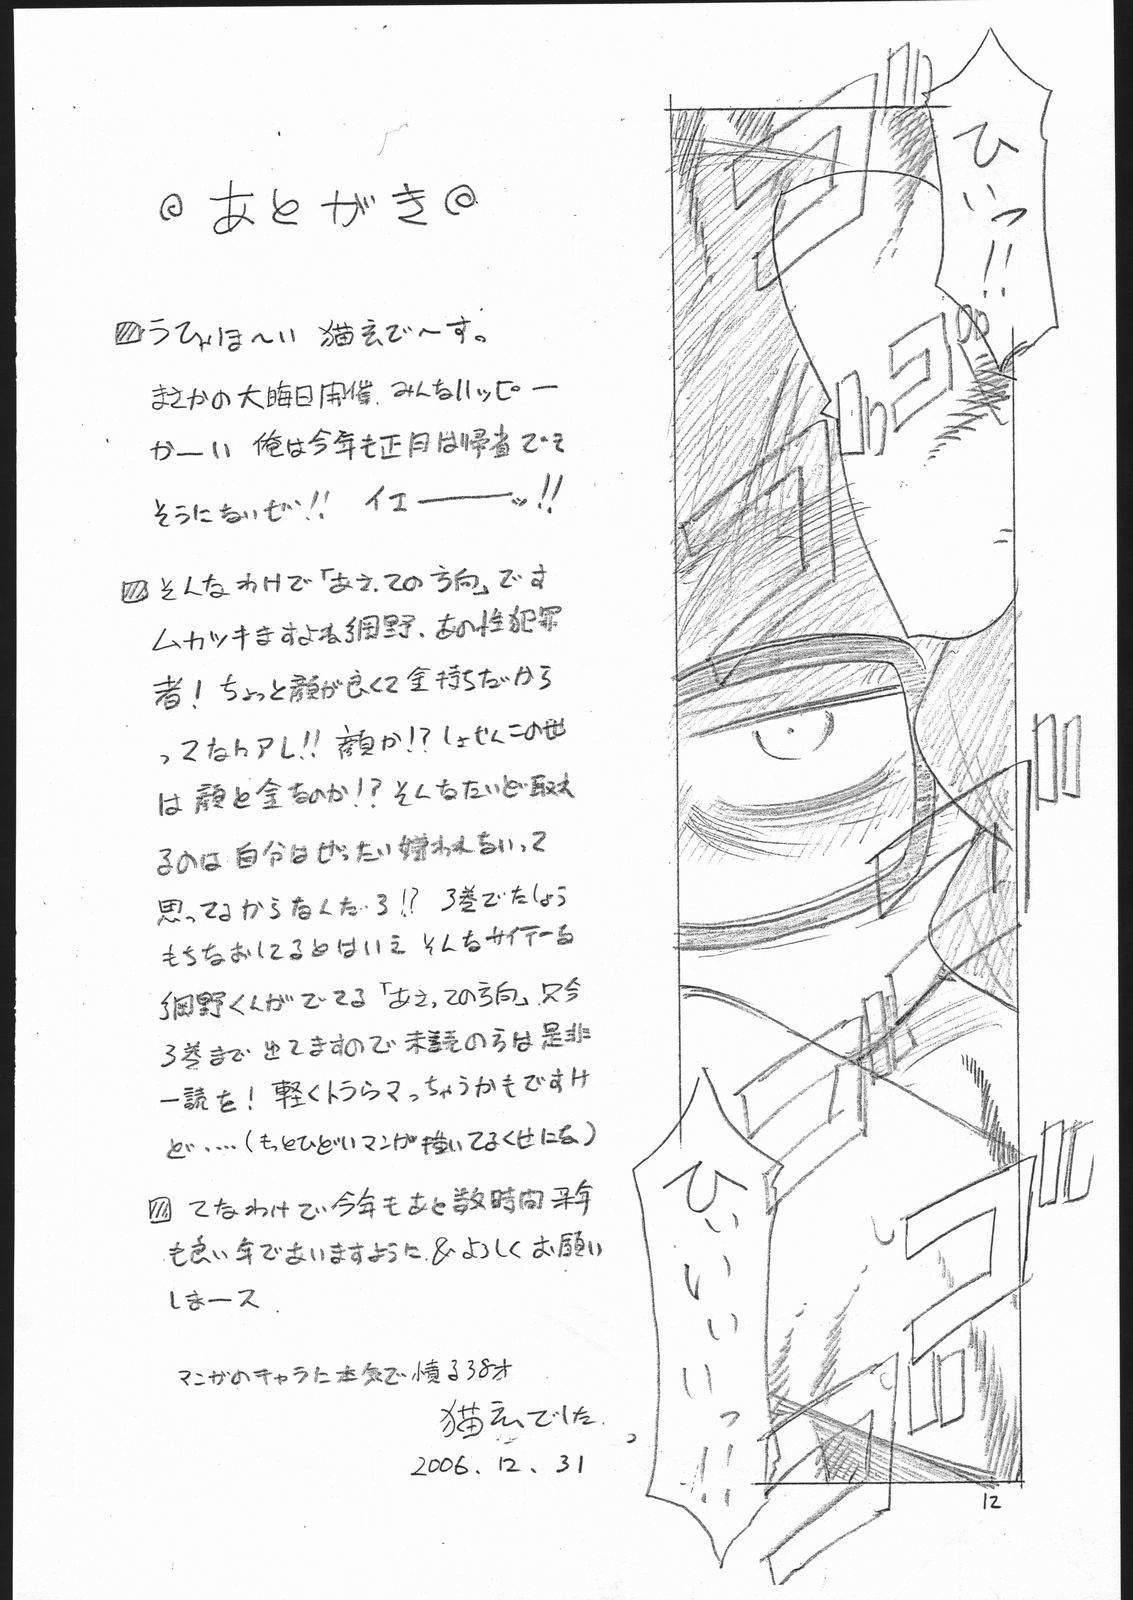 ひいっ!!
ゴゴゴ
ひいいいいっ!!
12
あとがき
うひゃほ〜い 猫玄で〜す。
まさかの大晦日開催、みんなハッピー
かーい 俺は今年も正月は帰省でき
そうにないぜ!! イエーーーッ!!
そんなわけで「あえての方向」です
ムカツキますよね網野、あの性犯罪
者! ちょっと顔が良くて金持ちだから
ってなんアレ!! 顔か!? しょせんこの世
は顔と金なのか!? そんなたいど取れ
るのは自分はぜったい嫌われないって
思ってるからなんだろ!? 3巻でたしょう
もちなおしてるとはいえ そんなサイテーな
網野くんがでてる「あえての方向」只今
3巻まで出てますので未読の方は是非
一読を! 軽くトラウマっちゃうかもですけ
ど‥‥(もっとひどいマンガ描いてるくせにな)
てなわけで今年もあと数時間 来年
も良い年でありますように & よろしくお願い
しまース
マンガのキャラに本気で憤る38才
猫玄でした。
2006.12.31